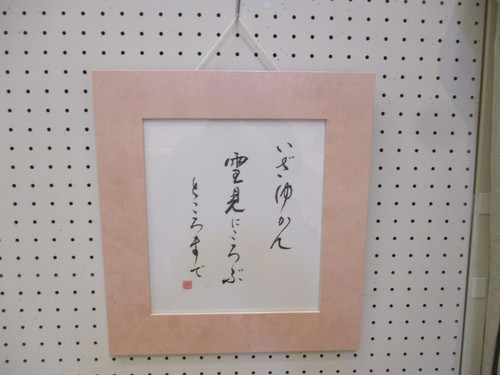 いざゆかん
雪見にころぶ
ところまで